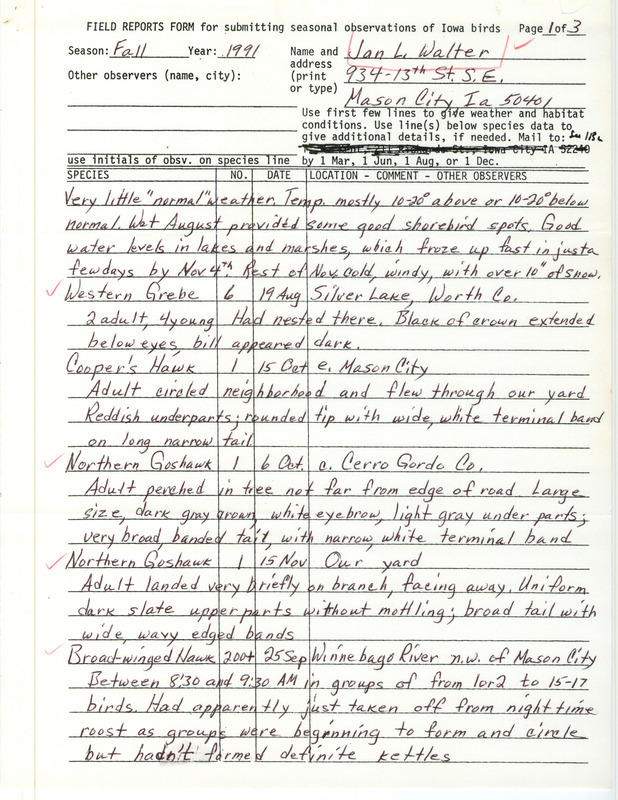 FIELD REPORTS FORM for submitting seasonal observations of Iowa birds Page 1 of 3
Season: Fall Year: 1991 Name and Jan L. Walter
address
Other observers (name, city): (print 934-13th St. S.E.
or type)
Mason City Ia 50401
Use first few lines to give weather and habitat
conditions. Use line(s) below species data to
give additional details, if needed. Mail to:
Iowa City IA 52240
use initials of obsv. on species line by 1 Mar, 1 Jun, 1 Aug, or 1 Dec.
SPECIES NO. DATE LOCATION - COMMENT - OTHER OBSERVERS
Very little "normal" weather. Temp. mostly 10-20° above or 10-20° below
normal. Wet August provided some good shorebird spots. Good
water levels in lakes and marshes, which froze up fast in just a
few days by Nov 4th Rest of Nov. cold, windy, with over 10" of snow.
Western Grebe 6 19 Aug Silver Lake, Worth Co.
2 adult, 4 young Had nested there. Black of crown extended
below eyes, bill appeared dark.
Cooper's Hawk 1 15 Oct e. Mason City
Adult circled neighborhood and flew through our yard
Reddish underparts; rounded tip with wide, white terminal band
on long narrow tail
Northern Goshawk 1 6 Oct. c. Cerro Gordo Co.
Adult perched in tree not far from edge of road Large
size, dark gray crown, white eyebrow, light gray under parts;
very broad, banded tail, with narrow, white terminal band
Northern Goshawk 1 15 Nov Our yard
Adult landed very briefly on branch, facing away. Uniform
dark slate upperparts without mottling; broad tail with
wide, wavy edged bands
Broad-winged Hawk 200+ 25 Sep Winnebago River n.w. of Mason City
Between 8:30 and 9:30 AM in groups of from 1 or 2 to 15-17
birds. Had apparently just taken off from night time
roost as groups were beginning to form and circle
but hadn't formed definite kettles